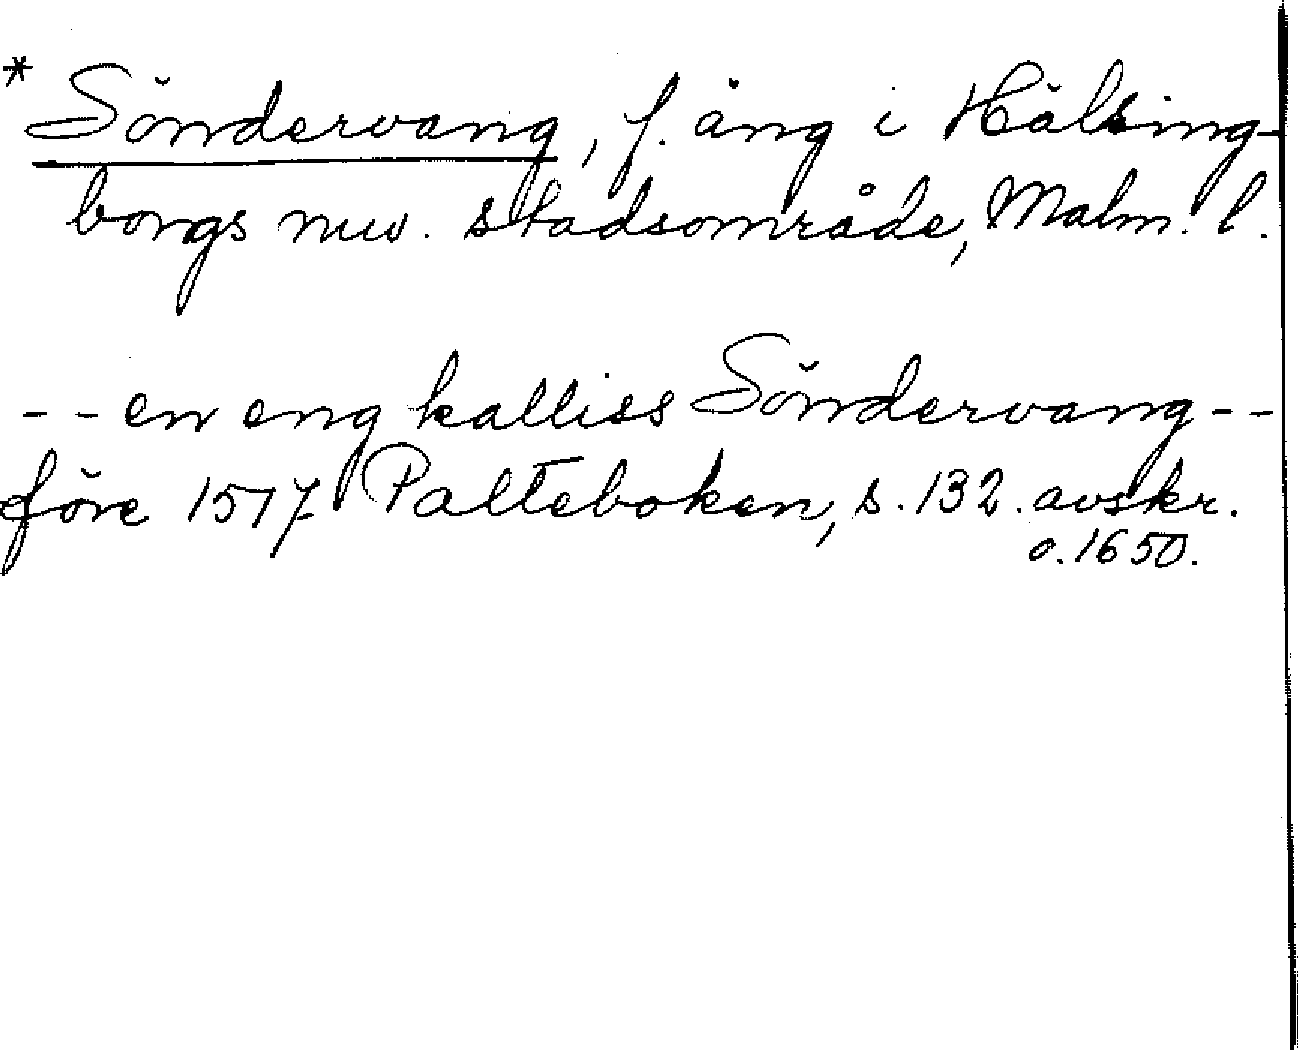 * Söndervang, f. äng i Hälsing-
borgs nuv. stadsområde, Malm. l.
-- en eng kalliss Söndervang --
före 1517 Palteboken, s. 132. avskr.
o. 1650.